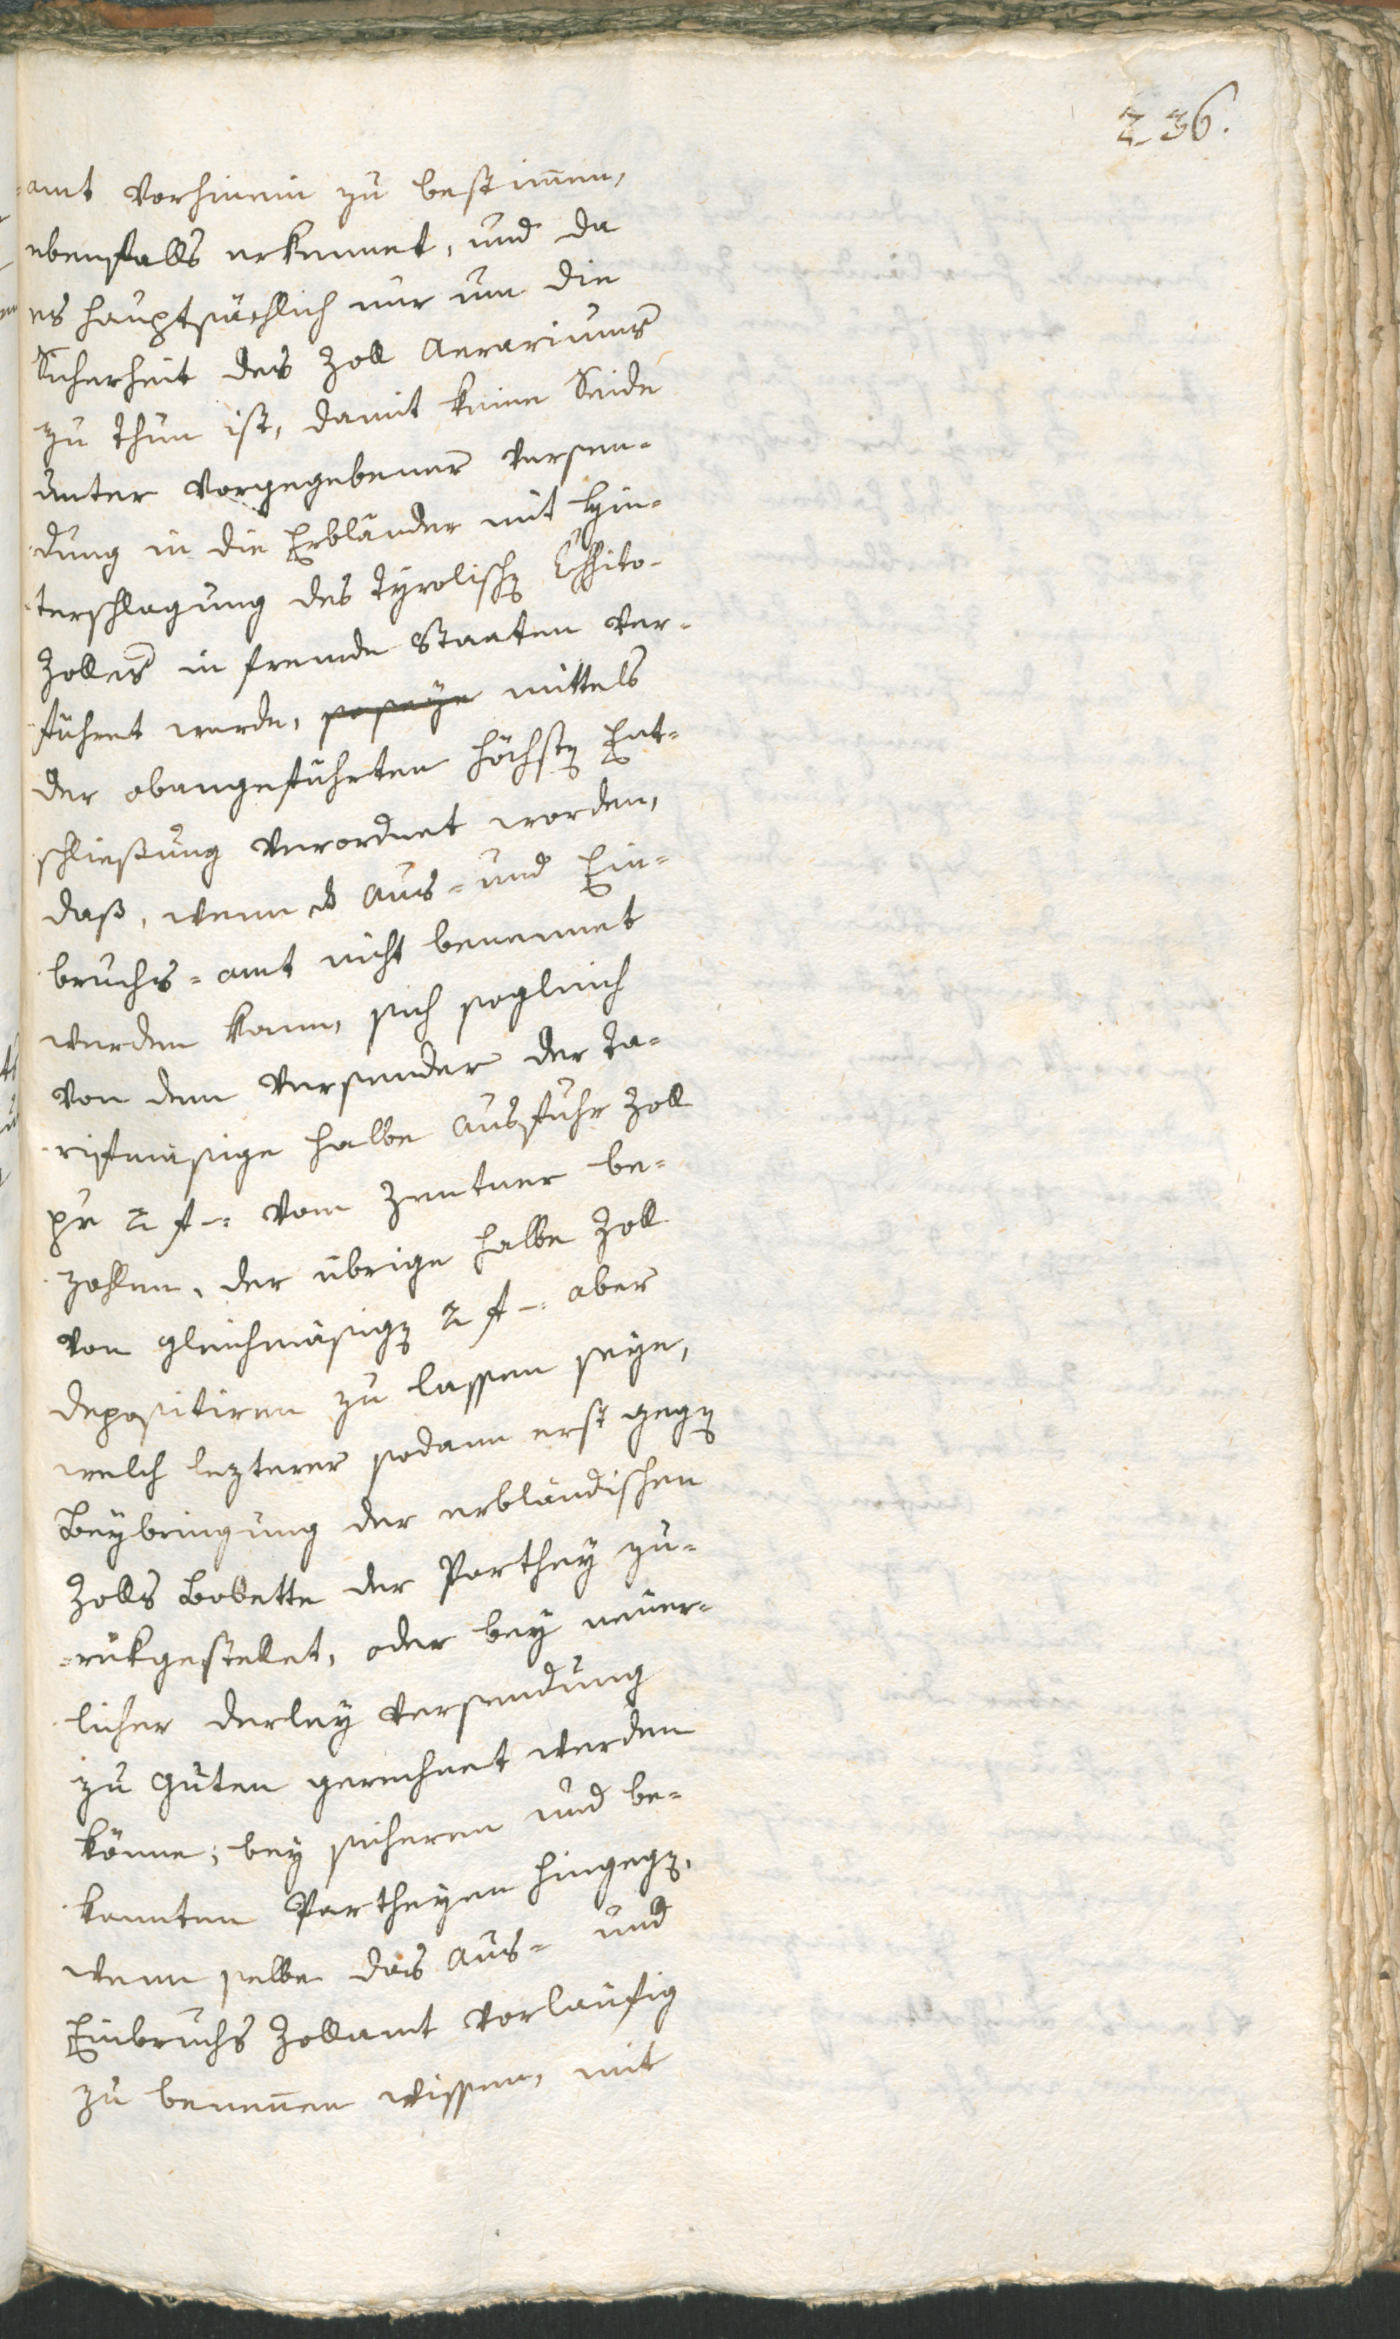 236.
=amt vorhinein zu bestim̄en,
ebenfalls erkennet, und da
es hauptsächlich nur um die
Sicherheit des Zoll Aerariums
zu thun ist, damit keine Seide
unter vorgegebener Versen-
dung in die Erbländer mit Hin-
terschlagung des Tyrolisch Essito-
Zolles in fremde Staaten ver-
führet werde, so seye mittels
der obangeführten höchst Ent-
schliessung verordnet worden,
daß, wenn das Aus- und Ein-
bruchs-amt nicht benennet
werden kann, sich sogleich
von dem Versender der Ta-
rifmäsige halbe Ausfuhr Zoll
pr 2 f -: vom Zentner be-
zahlen, der übrige halbe Zoll
von gleichmäsig 2 f -: aber
depositiren zu lassen seye,
welch lezterer sodann erst geg
Beybringung der erbländischen
Zolls Bollette der Parthey zu-
-rükgestellet, oder bey neuer-
licher derley Versendung
zu Guten gerechnet werden
könne; bey sicheren und be-
kannten Partheyen hingeg,
wenn selbe das Aus- und
Einbruchs Zollamt vorläufig
zu beneñen wissen, mit